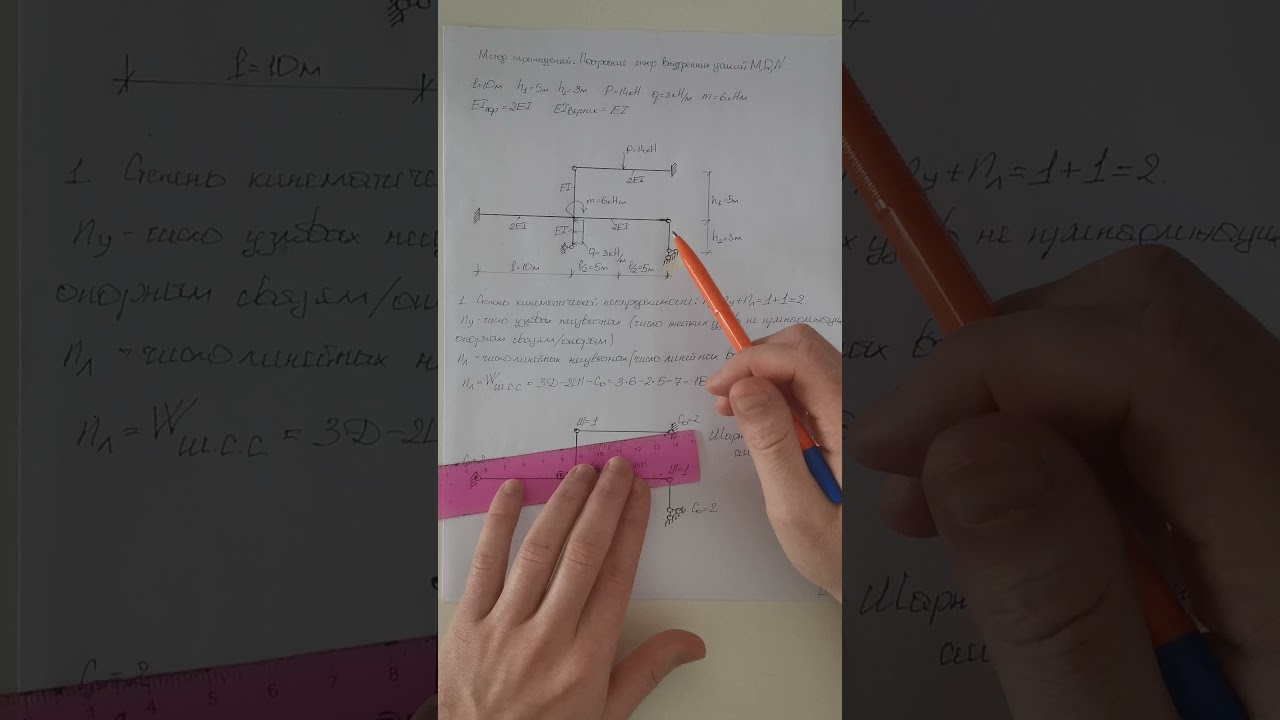 Метод перемещений. Построение эпюр внутренних усилий M,Q,N.
l=10м h₁=5м h₂=3м P=14кН q=3кН/м m=6кНм
EIгор=2EI EIвертик=EI
P=14кН
2EI
EI
m=6кНм
h₁=5м
2EI
EI
2EI
h₂=3м
q=3кН/м
l=10м
l/2=5м
l/2=5м
1. Степень кинематической неопределимости: nу+nл=1+1=2
nу - число узловых неизвестных (число жестких узлов не принадлежащих
опорным связям/опорам)
nл - число линейных неизвестных (число линейных
nл=Wш.с.с=3Д-2Ш-C₀=3·6-2·5-7
Ш=1
C₀=2
C₀=2
Ш=1
C₀=2
Шарн
l=10м
1 Степень кинематичес
nу - число узловых неи
опорным связям/о
nл - число линейных н
nл=Wш.с.с=3Д-2Ш
C₀=2
4
5
6
7
8
nу+nл=1+1=2.
Шарн